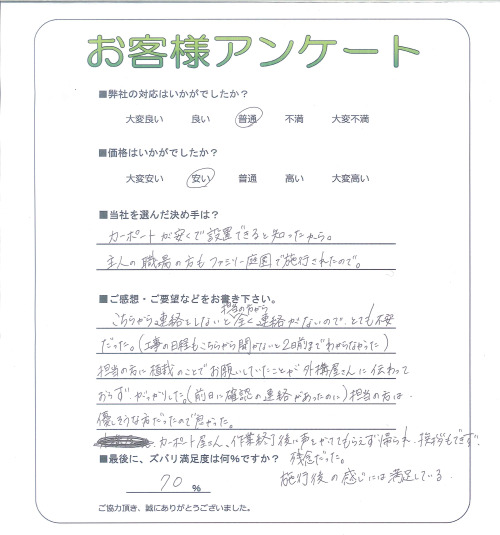 お客様アンケート
■弊社の対応はいかがでしたか？
大変良い　良い　普通　不満　大変不満
■価格はいかがでしたか？
大変安い　安い　普通　高い　大変高い
■当社を選んだ決め手は？
カーポートが安くで設置できると知ったから。
主人の職場の方もファミリー庭園で施行されたので。
■ご感想・ご要望などをお書き下さい。
担当の方から
こちらから連絡をしないと全く連絡がないので、とても不安
だった。(工事の日程もこちらから聞かないと2日前までわからなかった)
担当の方に植栽のことでお願いしていたことが外構屋さんに伝わって
おらず、がっかりした。(前日に確認の連絡があったのに)担当の方は、
優しそうな方だったので良かった。
カーポート屋さん、作業終了後い声をかけてもらえず帰られ、挨拶もできず、
残念だった。
■最後に、ズバリ満足度は何%ですか？
施行後の感じには満足している。
70 %
ご協力頂き、誠にありがとうございました。